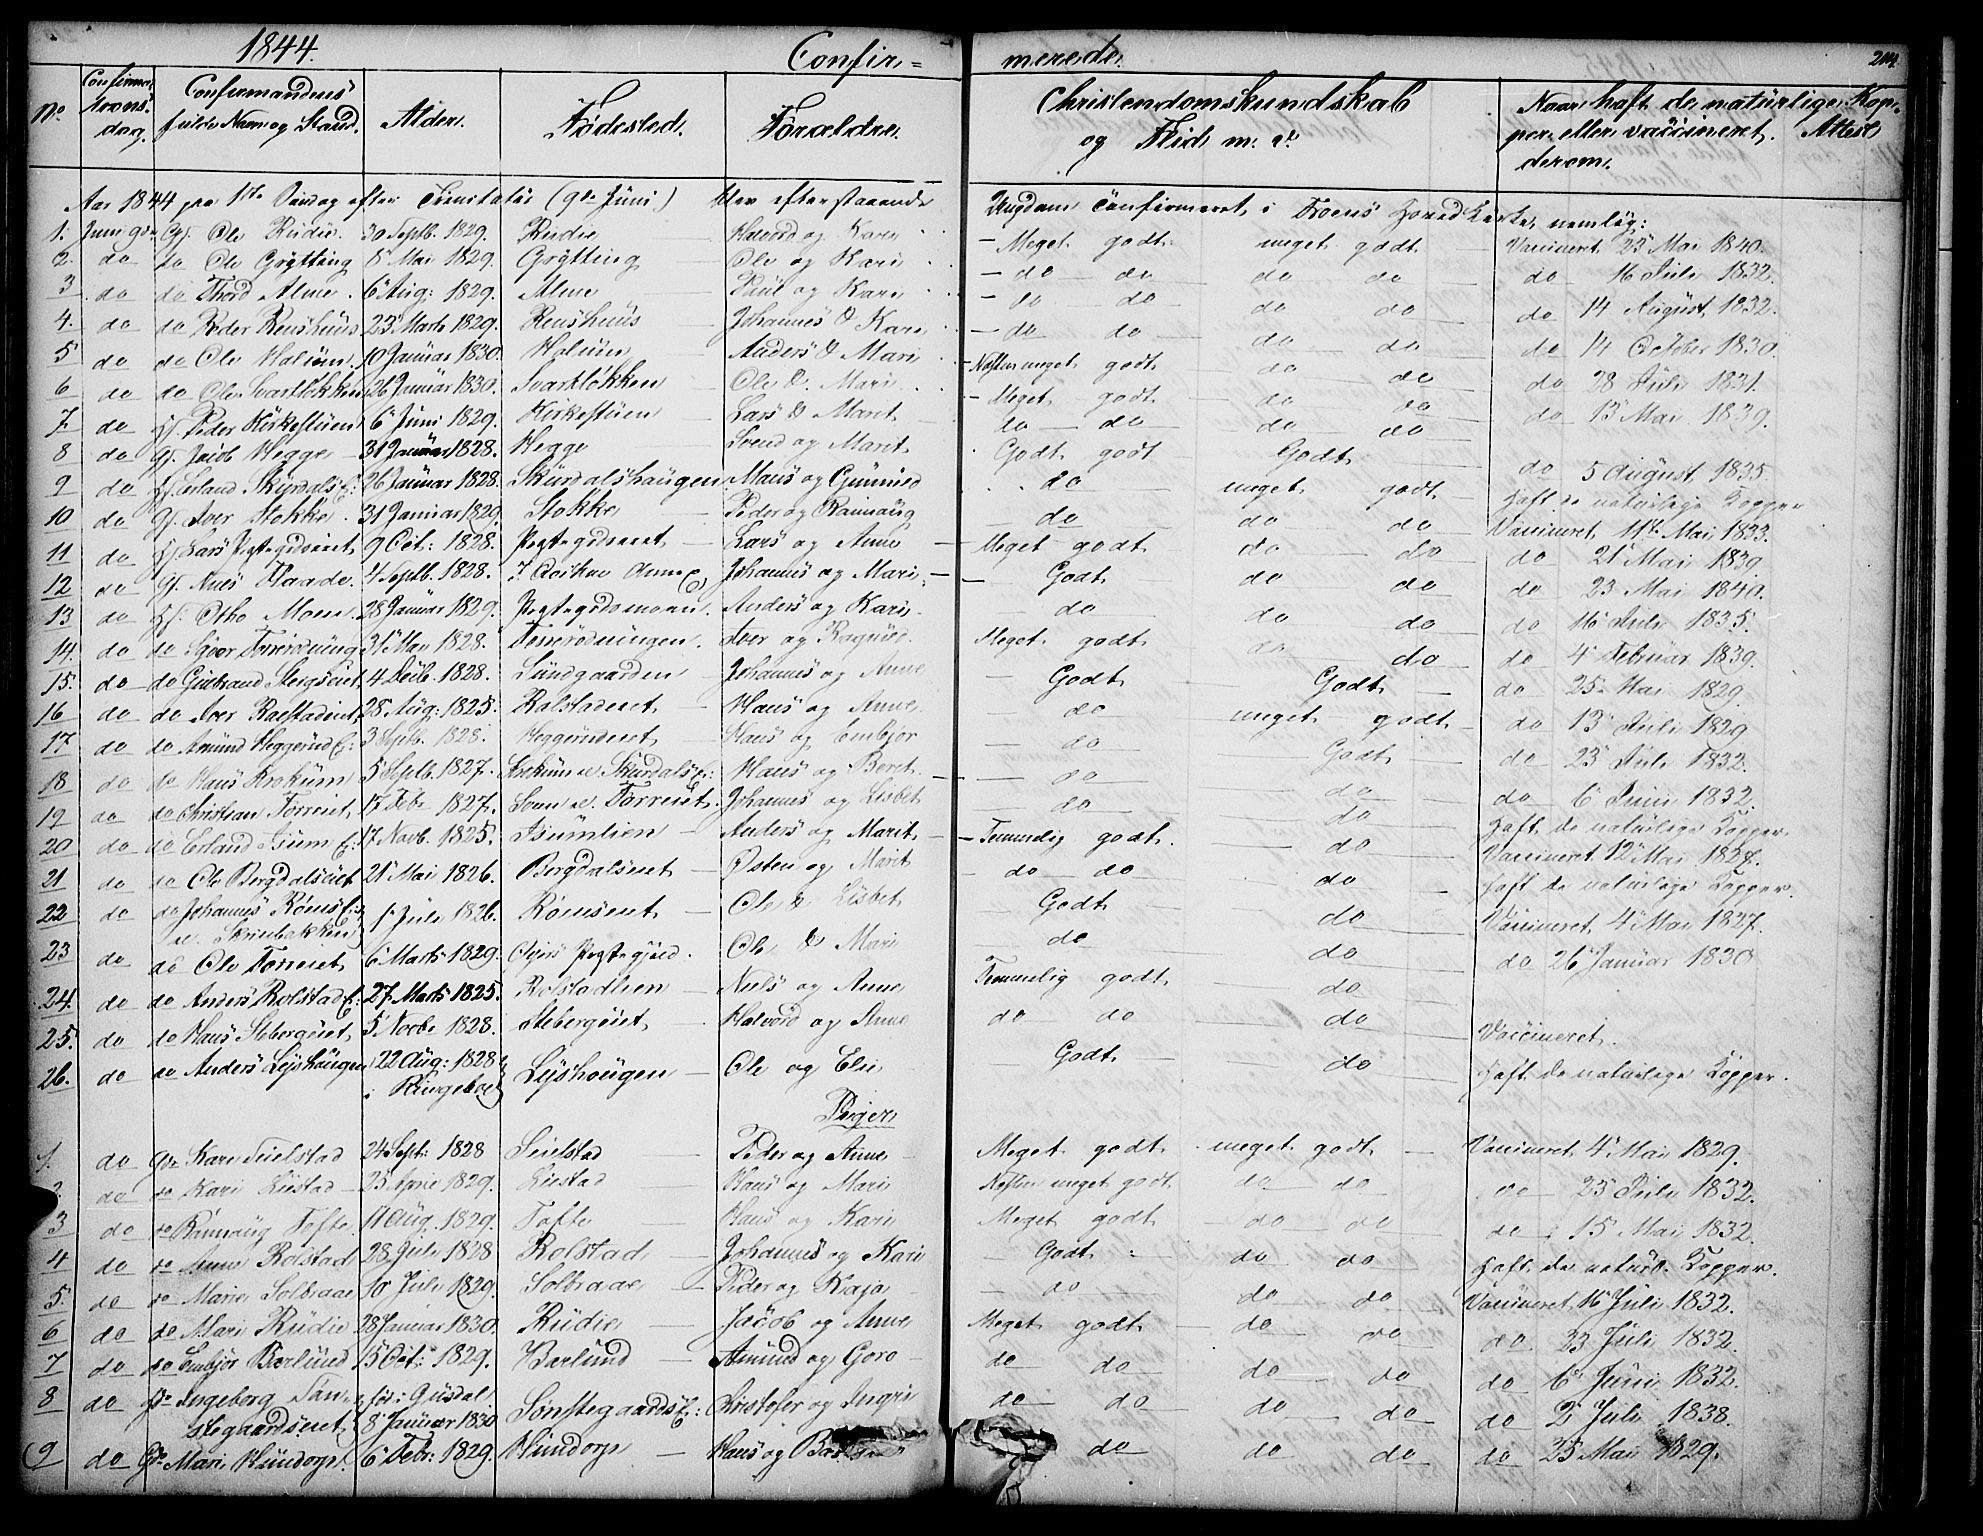 1844. Confir= merede. 214.
No. Confirma- Confirmandens Alder. Fødested. Forældre. Christendomskundskab Naar haft de naturlige Kop-
tions- fulde Navn og Stand. og Flid m. v. per eller vaccineret. Attest
dag. derom.
Aar 1844 paa 1ste Søndag efter Trinitatis (9de Juni) blev efterstaaende Ungdom confirmeret i Froens Hoved Kirke, nemlig:
1. Juni 9de Gj. Ole Rudie. 30 Septb. 1829. Rudie Halvord og Kari Meget godt meget godt Vaccineret 25 Mai 1840.
2. do do Ole Grytting 8 Mai 1829. Grytting Ole og Kari do do do do do 16 Juli 1832.
3 do do Thord Alme 6 Aug: 1829. Alme Paul og Kari do do do do do 14 August 1832.
4. do do Peder Renshuus 23 Marts 1829. Renshuus Johannes & Kari do do do do do 14 October 1830.
5 do do Ole Halum 10 Januar 1830. Halum Anders & Mari Næsten meget godt do do do 28 Juli 1831.
6 do do Ole Svartløkken 26 Januar 1830. Svartløkken Ole & Mari Meget godt do do do 13 Mai 1839.
7 do Hj. Peder Kirkestuen 6 Juni 1829. Kirkestuen Lars & Marit do do do do
8 do Gj. Jacob Hegge 31 Januar 1828. Hegge Svend og Marit Godt godt Godt do 5 August 1835.
9 do Hj. Erland SkurdalsE: 26 Januar 1828. Skurdalshaugen Hans og Gunnild do meget godt Haft de naturlige Kopper
10 do Gj. Iver Stokke 31 Januar 1829. Stokke Peder og Rannaug do do do Vaccineret 11te Mai 1833.
11 do Hj. Lars 9 Oct: 1828. Lars og Anne Meget godt do do do 21 Mai 1839
12 do Gj. Flaade. 4 Septb. 1828. Johannes og Mari Godt do do do 23 Mai 1840.
13 do Hj. Otho Moen 28 Januar 1829. Anders og Kari do do do do 16 Juli 1835.
14. do do 31 Mai 1828. Iver og Ragnild Meget godt do do do 4 Februar 1839.
15. do do Gudbrand 4 Decb. 1828. Lundgaarden Johannes og Anne Godt Godt do 25 Mai 1829
16 do do Iver 28 Aug: 1825. Rolstadeiet Hans og Anne do meget godt do 13 Juli 1829
17 do do Amund HeggerudE: 3 Septb. 1828. Heggerudeiet Hans og Embjør do Godt do 23 Juli 1832.
18 do do Hans Krokum 5 Septb. 1827. Krokum SkurdalsE: Hans og Beret do do do 6 Juni 1832.
19 do do Christian Forreiet 17 Febr 1827. Forreiet Johannes og Lisbet do do Haft de naturlige Kopper
20 do do Erland Isum E: 17 Novb. 1825. Isumlien Anders og Marit Temmelig godt. do Vaccineret 12 Mai 1827.
21 do do Ole Bergdalseiet 21 Mai 1826. Bergdalseiet Østen og Marit do do do Haft de naturlige Kopper
22 do do Johannes RømsE: 1 Juli 1826. Rømseiet Ole & Lisbet Godt do Vaccineret 4 Mai 1827.
Skrinbakken
23 do do Ole Forreiet 6 Marts 1829. Ole & Mari do do do 26 Januar 1830
24. do do Anders RolstadE: 27 Marts 1825. Rolstadlien Niels og Anne Temmelig godt do
25. do do Hans Stebergeiet 5 Novbr 1828. Stebergeiet Halvord og Anne do do do Vaccineret.
26. do do Anders Lejshaugen 22 Aug: 1828 Lejshaugen Ole og Eli Godt do Haft de naturlige Kopper.
i Ringeboe
Piger
1. do gj. Kari Seielstad 24 Sept: 1828 Seielstad Peder og Anne Meget godt meget godt Vaccineret 4 Mai 1829.
2. do do Kari Liestad 25 April 1829. Liestad Hans og Mari Næsten meget godt do do do 23 Juli 1832.
3 do do Rannaug Tofte 11 Aug. 1829. Tofte Hans og Kari Meget godt do do do 15 Mai 1832.
4 do do Anne Rolstad 28 Juli 1828 Rolstad Johannes og Kari Godt do do Haft de naturl. Kopper.
5. do do Marie Solbraae 10 Juli 1829. Solbraae Peder og Kaja do do do Vaccineret 16 Juli 1832.
6 do do Mari Rudie 28 Januar 1830. Rudie Jacob og Anne Meget godt do do do 23 Juli 1832.
7 do do Embjør Barlund 15 Oct: 1829. Harlund Amund og Goro do do do do do 6 Juni 1832.
8 do Hj. Ingeborg Søn- fød: i Gusdal SønstegaardsE: Christofer og Ingri do do do do do 2 Juli 1838.
stegaardseiet 8 Januar 1830
9 do Gj. Mari Hundorp 6 Febr: 1829. Hundorp Hans og do do do do 25 Mai 1829.